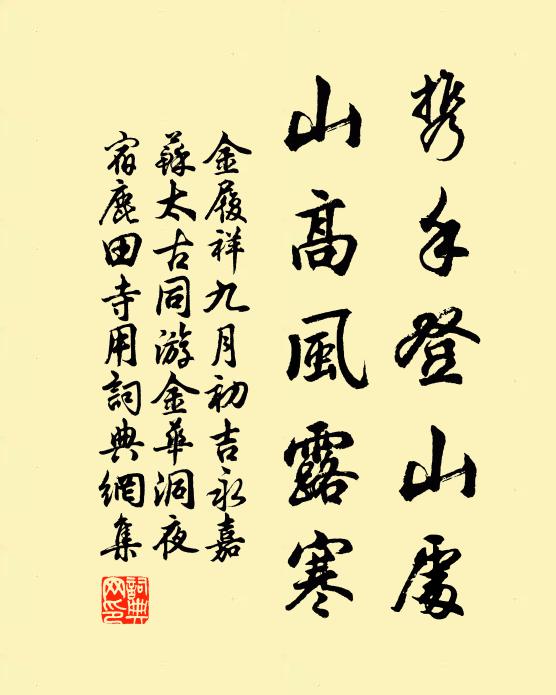 携手登山處
山高風露寒
金履祥九月初吉永嘉
蘇太古同游金華洞夜
宿鹿田寺用詞典網集
詞典網印